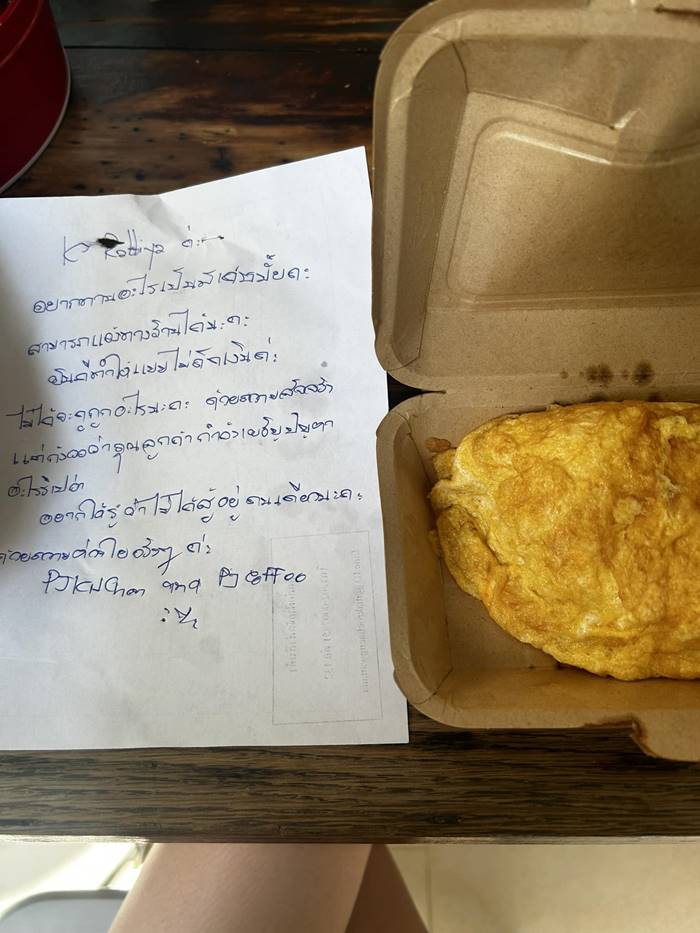 K. Rattiya ค่ะ
อยากทานอะไรเป็นพิเศษมั้ยคะ
สามารถแจ้งทางร้านได้นะคะ
ยินดีทำให้แบบไม่คิดเงินค่ะ
ไม่ได้จะดูถูกอะไรนะคะ ด้วยความสัจจริง
แต่กังวลว่าคุณลูกค้ากำลังเผชิญปัญหา
อะไรรึเปล่า
อยากให้รู้ว่าไม่ได้สู้อยู่คนเดียวนะคะ
ด้วยความห่วงใยจริงๆ ค่ะ
PJ Kitchen and PJ Coffee